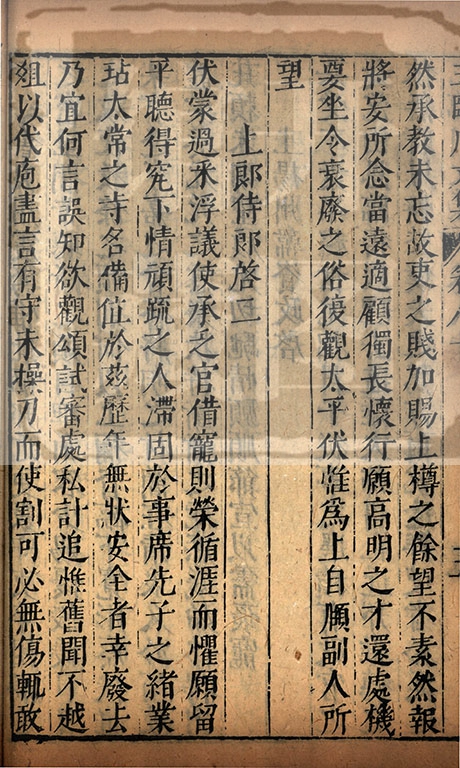 然承教未忘故吏之賤加賜上樽之餘望不素然報
將安所念當遠適顧獨長懷行願高明之才還處機
要坐令衰廢之俗復觀太平伏惟爲上自頤副人所
望
上郎侍郎啓二
伏蒙過采浮議使承乏官借寵則榮循涯而懼願留
平聽得究下情頑疏之人滯固於事席先子之緒業
玷太常之寺名備位於茲歷年無狀安全者幸廢去
乃宜何言誤知欲觀頌試審處私計追惟舊聞不越
俎以代庖盡言有守未操刀而使割可必無傷輒敢